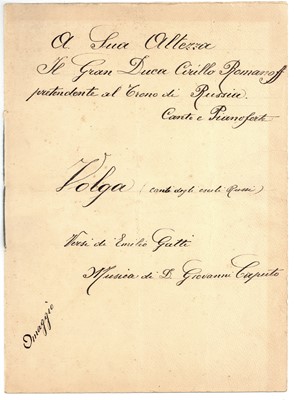 A Sua Altezza
Il Gran Duca Cirillo Romanoff
pretendente al Trono di Russia.
Canto e Pianoforte
Volga (canto degli esuli Russi)
Versi di Emilio Gatti
Musica di D. Giovanni Caputo
Omaggio